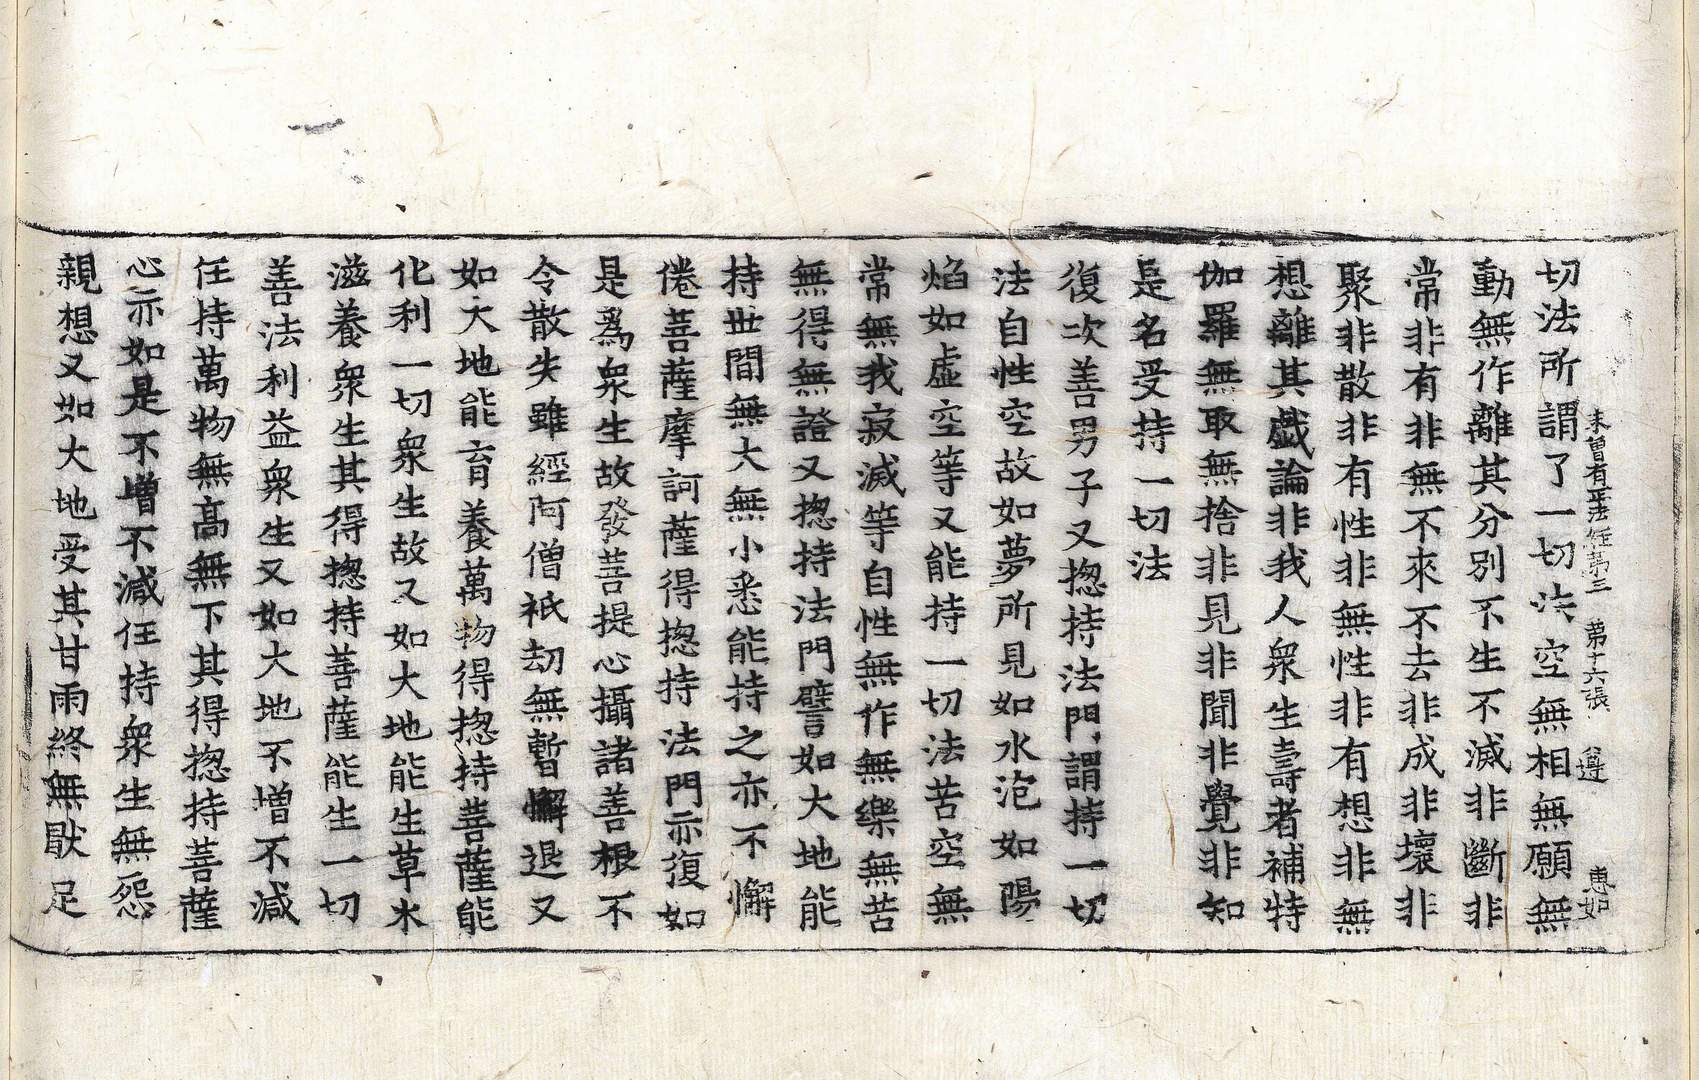 未曾有正法經第三　第十六張　遵　惠如
切法所謂了一切法空無相無願無
動無作離其分別不生不滅非斷非
常非有非無不來不去非成非壞非
聚非散非有性非無性非有想非無
想離其戲論非我人衆生壽者補特
伽羅無取無捨非見非聞非覺非知
是名受持一切法
復次善男子又揔持法門謂持一切
法自性空故如夢所見如水泡如陽
焰如虛空等又能持一切法苦空無
常無我寂滅等自性無作無樂無苦
無得無證又揔持法門譬如大地能
持世間無大無小悉能持之亦不懈
倦菩薩摩訶薩得揔持法門亦復如
是爲衆生故發菩提心攝諸善根不
令散失雖經阿僧祇劫無暫懈退又
如大地能育養萬物得揔持菩薩能
化利一切衆生故又如大地能生草木
滋養衆生其得揔持菩薩能生一切
善法利益衆生又如大地不增不減
任持萬物無高無下其得揔持菩薩
心亦如是不增不減任持衆生無怨
親想又如大地受其甘雨終無猒足